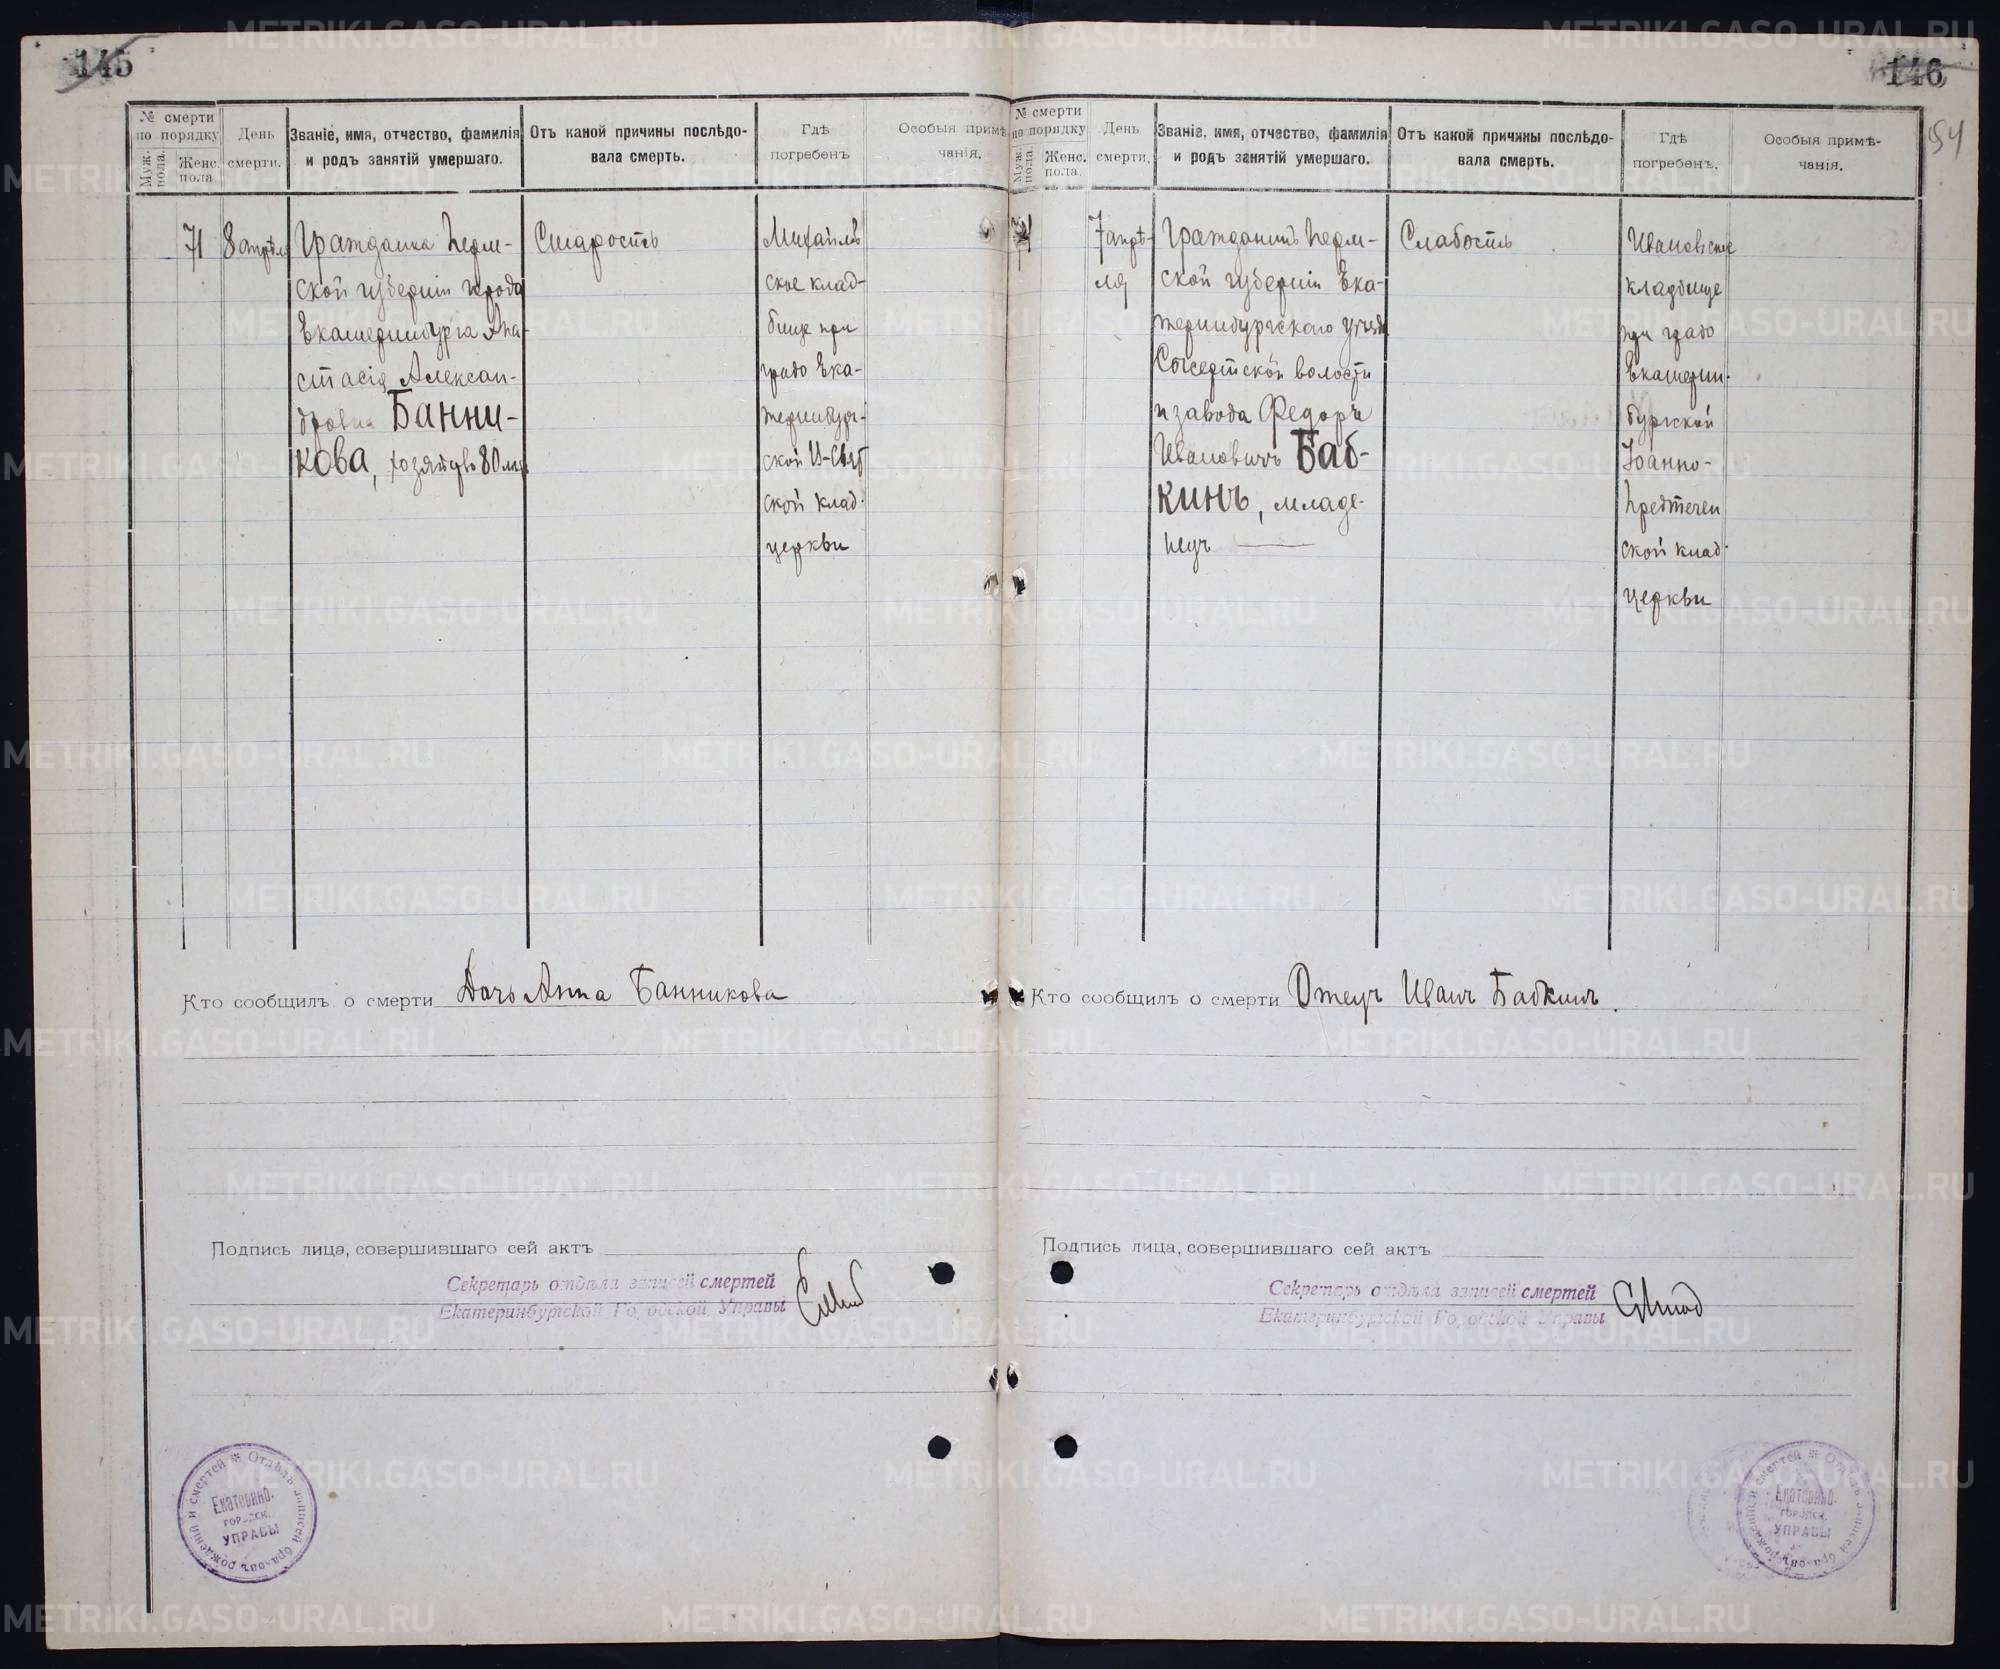 145
№ смерти
по порядку
Муж. пола.
Женс. пола.
День
смерти.
Званіе, имя, отчество, фамилія
и родъ занятій умершаго.
Отъ какой причины послѣдо-
вала смерть.
Гдѣ
погребенъ
Особыя примѣ-
чанія.
71
8 апрѣля
Гражданка Перм-
ской губерніи города
Екатеринбурга Ана-
стасія Алексан-
дровна Банни-
кова, хозяйство 80 лѣтъ
Старость
Михайлов
ское клад-
бище при
градо Ека-
теринбург-
ской
ской клад.
церкви
Кто сообщилъ о смерти Дочь Анна Банникова
Подпись лица, совершившаго сей актъ
Секретарь отдѣла записей смертей
Екатеринбургской Городской Управы
Отдѣлъ записей браковъ рожденій и смертей
Екатеринб.
городск.
УПРАВЫ
146
54
№ смерти
по порядку
Муж. пола.
Женс. пола.
День
смерти.
Званіе, имя, отчество, фамилія
и родъ занятій умершаго.
Отъ какой причины послѣдо-
вала смерть.
Гдѣ
погребенъ.
Особыя примѣ-
чанія.
7 апрѣ-
ля
Гражданинъ Перм-
ской губерніи Ека-
теринбургскаго уѣзда
Сысертской волости
и завода Федоръ
Ивановичъ Баб-
кинъ, младе-
нецъ
Слабость
Ивановское
кладбище
при градо
Екатерин-
бургской
Іоанно-
Предтечен
ской клад.
церкви
Кто сообщилъ о смерти Отецъ Иванъ Бабкинъ.
Подпись лица, совершившаго сей актъ
Секретарь отдѣла записей смертей
Екатеринбургской Городской Управы
Отдѣлъ записей браковъ рожденій и смертей
Екатеринб.
городск.
УПРАВЫ
METRIKI.GASO-URAL.RU